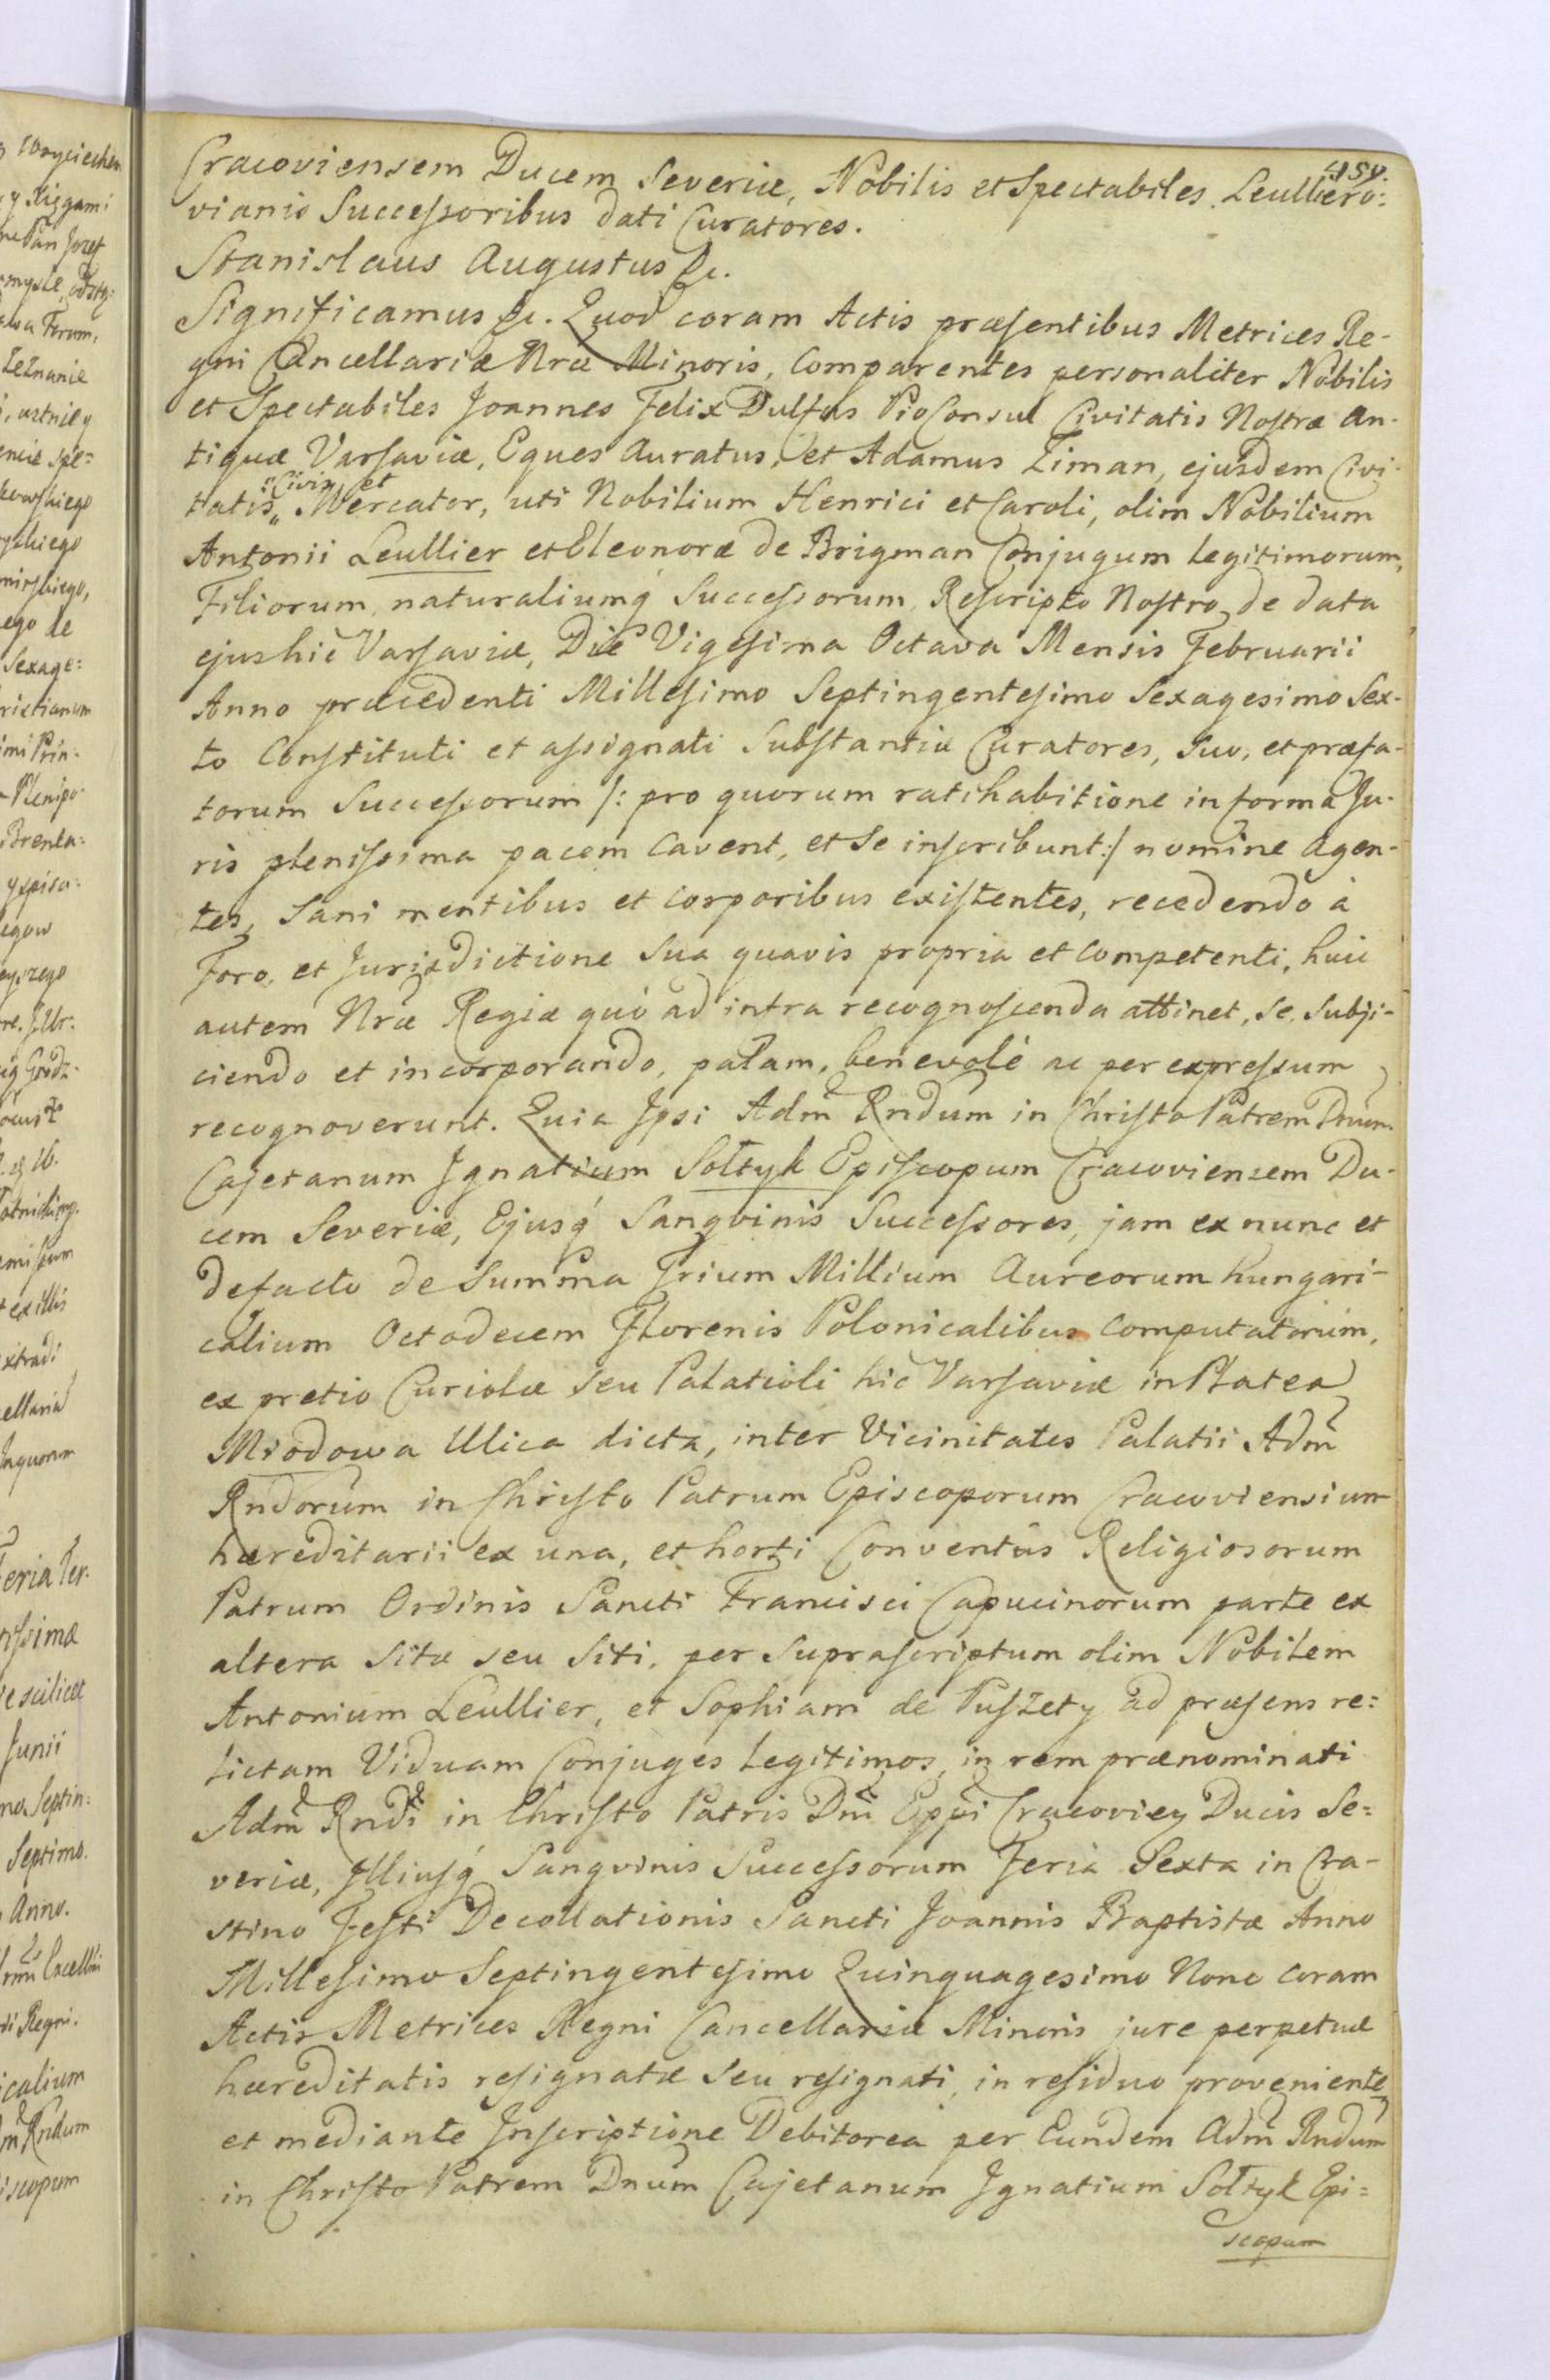 454.
Cracoviensem Ducem Severiæ, Nobilis et Spectabiles Leulliero:
vianis Successoribus dati Curatores.
Stanislaus Augustus &c.
Significamus &c. Quod coram Actis præsentibus Metrices Re-
gni Cancellariæ Nræ Minoris, Comparentes personaliter Nobilis
et Spectabiles Joannes Felix Dulfus ProConsul Civitatis Nostræ An-
tiquæ Varsaviæ, Eques Auratus, et Adamus Ziman, ejusdem Civi-
tatis „Civis et Mercator, uti Nobilium Henrici et Caroli, olim Nobilium
Antonii Leullier et Eleonoræ de Brigman Conjugum legitimorum,
Filiorum, naturaliumq́ Successorum, Rescripto Nostro de data
ejus hic Varsaviæ, Die Vigesima Octava Mensis Februarii
Anno præcedenti Millesimo Septingentesimo Sexagesimo Sex-
to Constituti et assignati Substantiæ Curatores, Suo, et præfa-
torum Successorum /: pro quorum ratihabitione in forma Ju-
ris plenissima pacem Cavent, et Se inscribunt :/ nomine Agen-
tes, Sani mentibus et corporibus existentes, recedendo à
Foro, et Jurisdictione Sua quavis propria et Competenti, huic
autem Nræ Regiæ quò ad intra recognoscenda attinet, Se Subji-
ciendo et incorporando, palam, benevolè ac per expressum
recognoverunt. Quia Ipsi Adm̃ Rndum in Christo Patrem Dnum
Cajetanum Ignatium Sołtyk Episcopum Cracoviensem Du-
cem Severiæ, Ejusq́ Sangvinis Successores, jam ex nunc et
de facto de Summa Trium Millium Aureorum hungari-
calium Octodecem Florenis Polonicalibus Computatorum,
ex pretio Curiolæ Seu Palatioli hic Varsaviæ in Platea
Miodowa Ulica dicta, inter Vicinitates Palatii Adm̃
Rndorum in Christo Patrum Episcoporum Cracoviensium
hæreditarii ex una, et horti Conventûs Religiosorum
Patrum Ordinis Sancti Francisci Capucinorum parte ex
altera Sitæ seu Siti, per Suprascriptum olim Nobilem
Antonium Leullier, et Sophiam de Puszety ad præsens re=
lictam Viduam Conjuges legitimos, in rem prænominati
Adm̃ Rndi in Christo Patris Dm̃ Eppi Cracovien Ducis Se=
veriæ, Illiusq́ Sangvinis Successorum Feria Sexta in Cra-
stino Festi Decollationis Sancti Joannis Baptistæ Anno
Millesimo Septingentesimo Quinquagesimo Nono Coram
Actis Metrices Regni Cancellariæ Minoris jure perpetuæ
hæreditatis resignatæ Seu resignati, in residuo proveniente
et mediante Inscriptione Debitorea per Eundem Adm̃ Rndum
in Christo Patrem Dnum Cajetanum Ignatium Sołtyk Epi=
scopum